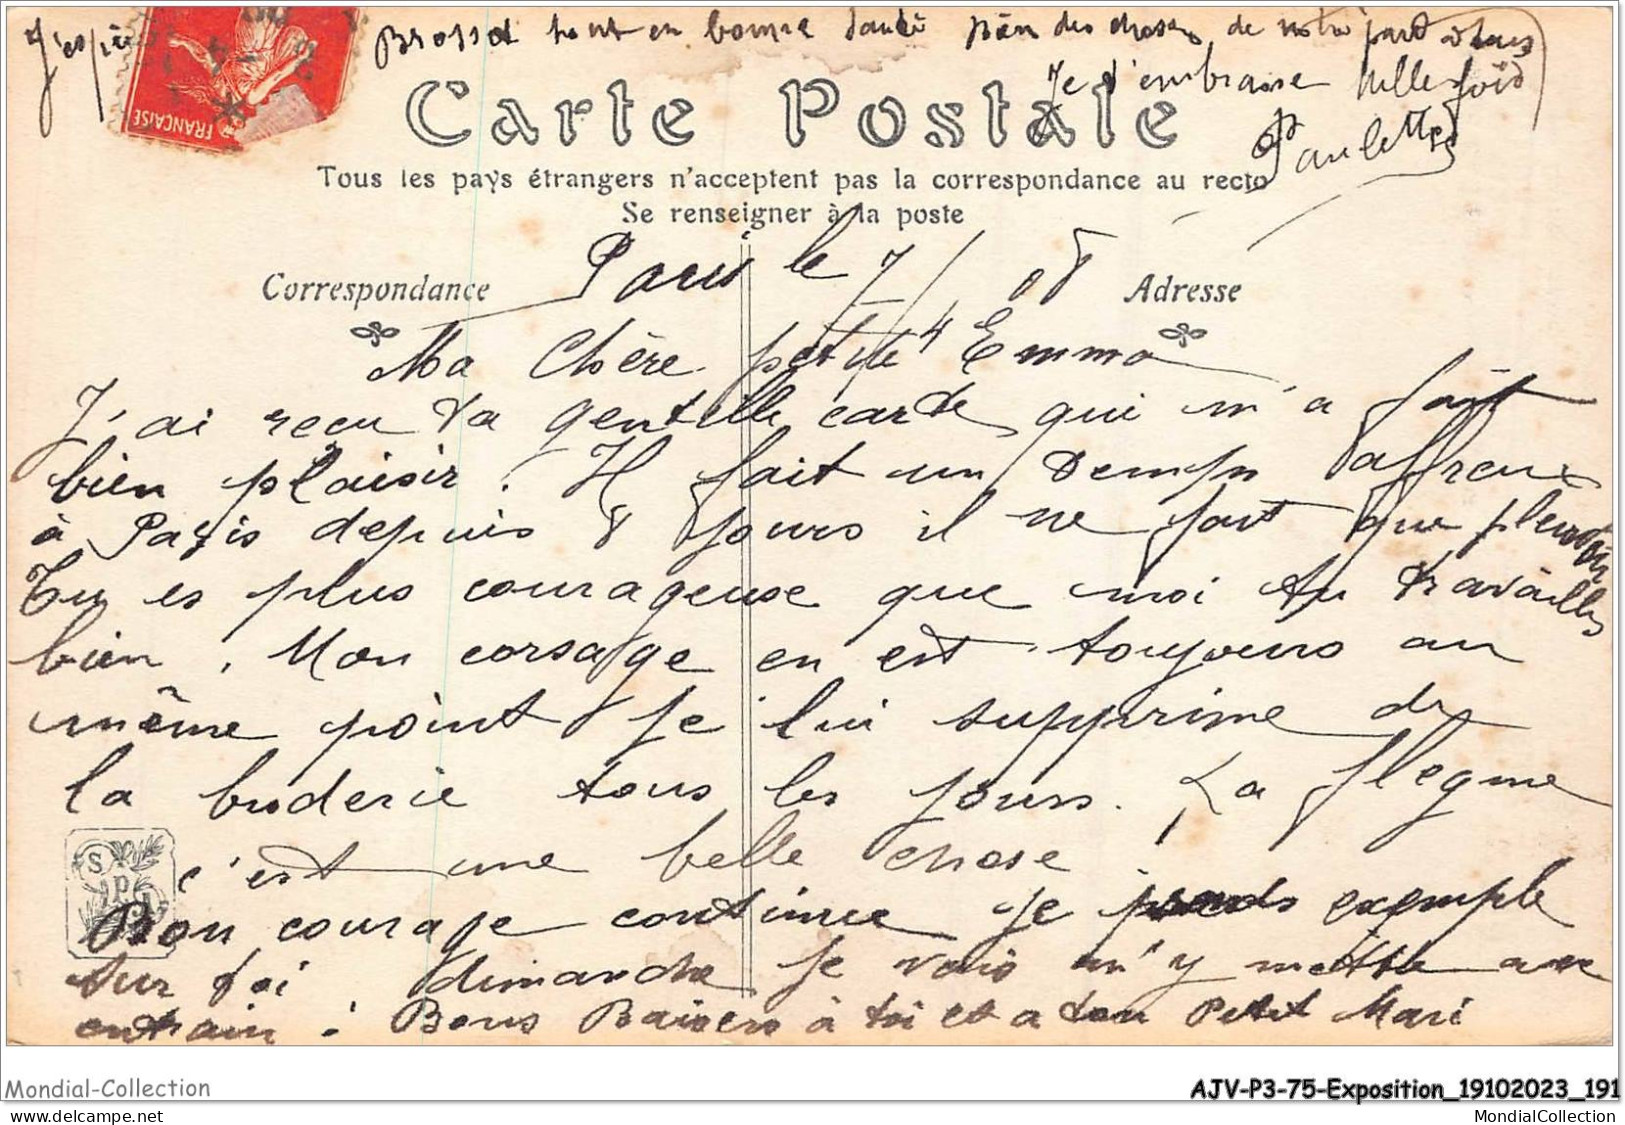 J'espère Brossat tout en bonne santé bien des choses de notre part à tous
Je t'embrasse Mille fois
Paulette
FRANCAISE
Carte Postale
Tous les pays étrangers n'acceptent pas la correspondance au recto
Se renseigner à la poste
Paris le 7/4 08
Correspondance
Adresse
Ma Chère petite Emma
J'ai reçu ta gentille carte qui m'a fait
bien plaisir. Il fait un temps affreux
à Paris depuis 8 jours il ne fait que pleuvoir
Tu es plus courageuse que moi tu travailles
bien. Mon corsage en est toujours au
même point je lui supprime de
la broderie tous les jours. La flegme
c'est une belle chose
SPJ
Bon courage continue je prends exemple
sur toi dimanche je vais m'y mettre avec
entrain : Bons Baisers à toi et a ton Petit Mari
Mondial-Collection
AJV-P3-75-Exposition_19102023_191
www.mondialcollection.net
MondialCollection